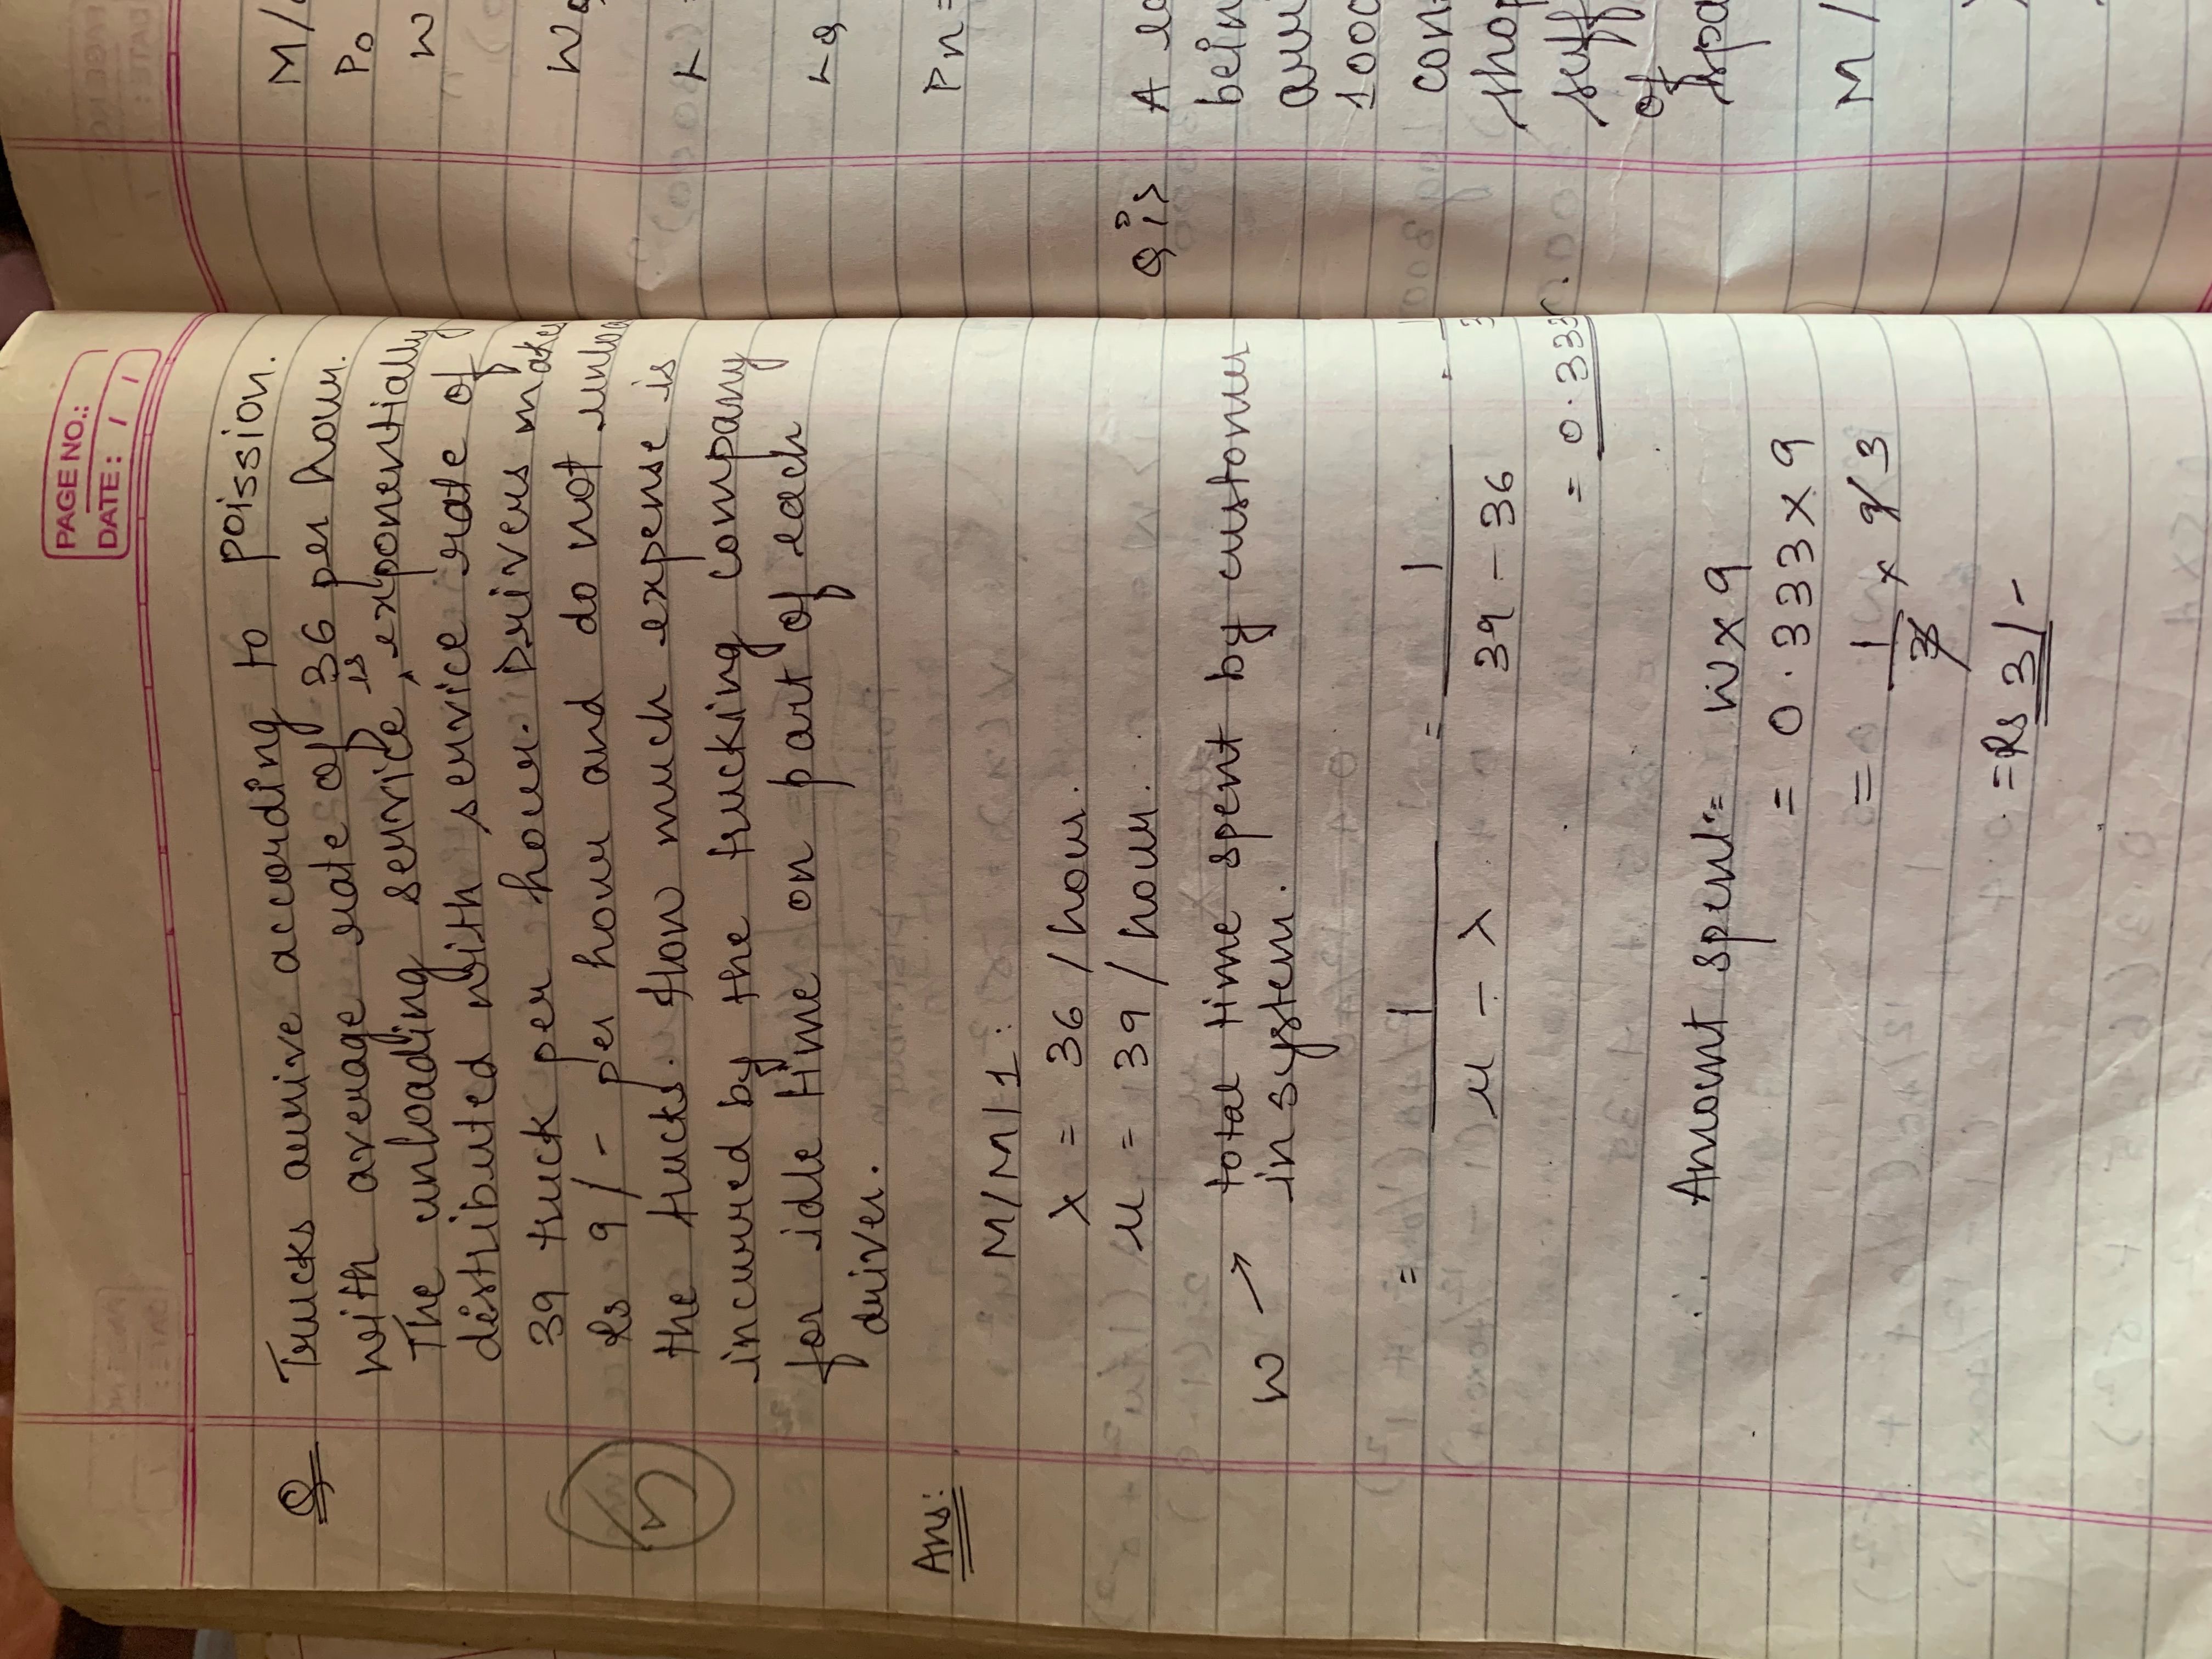 PAGE NO.:
DATE: / /
Q Trucks arrive according to poission.
with average rate of 36 per hour.
The unloading service is exponentially
distributed with service rate of
39 truck per hour. Drivers make
Rs 9/- per hour and do not unloa
5
the trucks. How much expense is
incurred by the trucking company
for idle time on part of each
driver.
Ans:
M/M/1:
λ = 36 /hour.
μ = 39 /hour.
W → total time spent by customer
in system.
= 1 / μ - λ = 1 / 39 - 36 =
= 0.333
∴ Amount spent = W x 9
= 0.333 x 9
= 1/3 x 9 3
= Rs 3/-
M/
P0
W
L
LQ
Pn =
Q i>
A
bein
1000
con
shop
suff
of
spa
M /